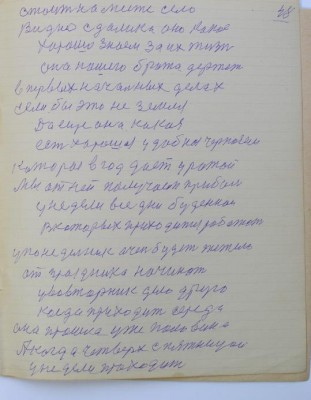 28
стоит на ште село
Видно с далика оно какое
Хорошо знаем за их жизн
она нашего брата держет
в первых начальных делах
Если бы это не земля
Да еще она какая
ест хорошая удобная чернозем
Которая в год дает урожай
Мы от ней получаем прибыл
у недели все дни буденное
В которых приходится работат
у понедельник очен будет тежело
от праздника начинат
уво вторник дело другое
когди приходит середа
она прошла уже половина
А когда четверг с пятницои
у недели приходит